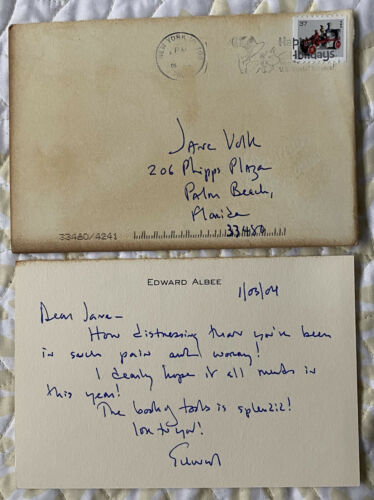 NEW YORK
PM
37
Happy
Holidays
Jane Volk
206 Phipps Plaza
Palm Beach,
Florida
33480
33480/4241
EDWARD ALBEE
1/03/04
Dear Jane–
How distressing that you've been
in such pain and worry!
I dearly hope it all mends in
this year!
The body is splendid!
love to you!
Edward